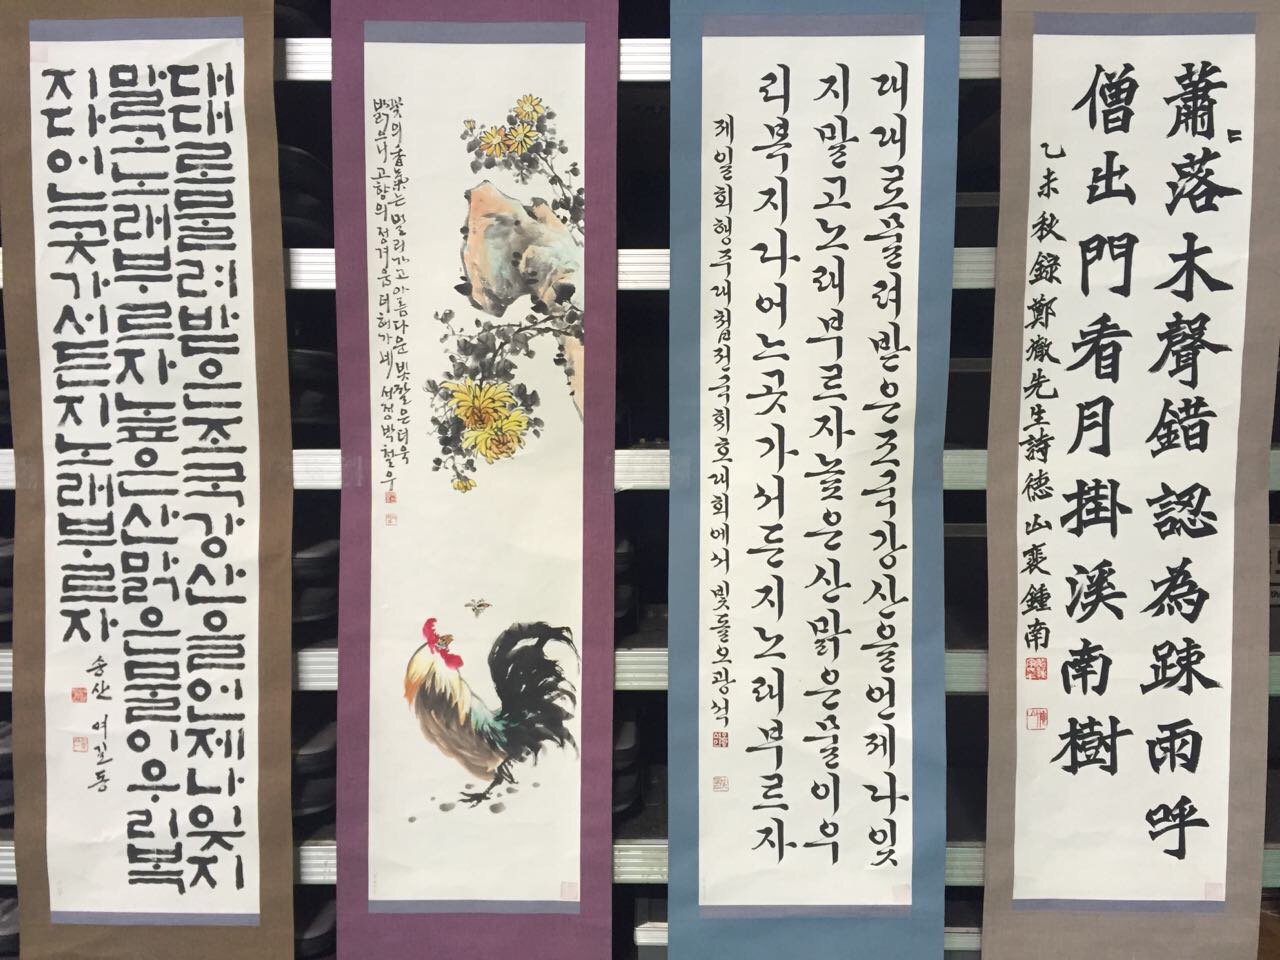 대대로물려받은조국강산을언제나잊지
말고노래부르자높은산맑은물이우리복
지다어느곳가서든지노래부르자
송산 여길동
꽃의 香氣는 멀리가고 아름다운 빛깔은 더욱
밝으니 고향의 정겨움 더허가네 서정 박철우
대대로물려받은조국강산을언제나잊
지말고노래부르자높은산맑은물이우
리복지다어느곳가서든지노래부르자
제일회행주대첩전국휘호대회에서 빛돌오광석
蕭〻落木聲錯認為疎雨呼
僧出門看月掛溪南樹
乙未秋録鄭澈先生詩德山裵鍾南